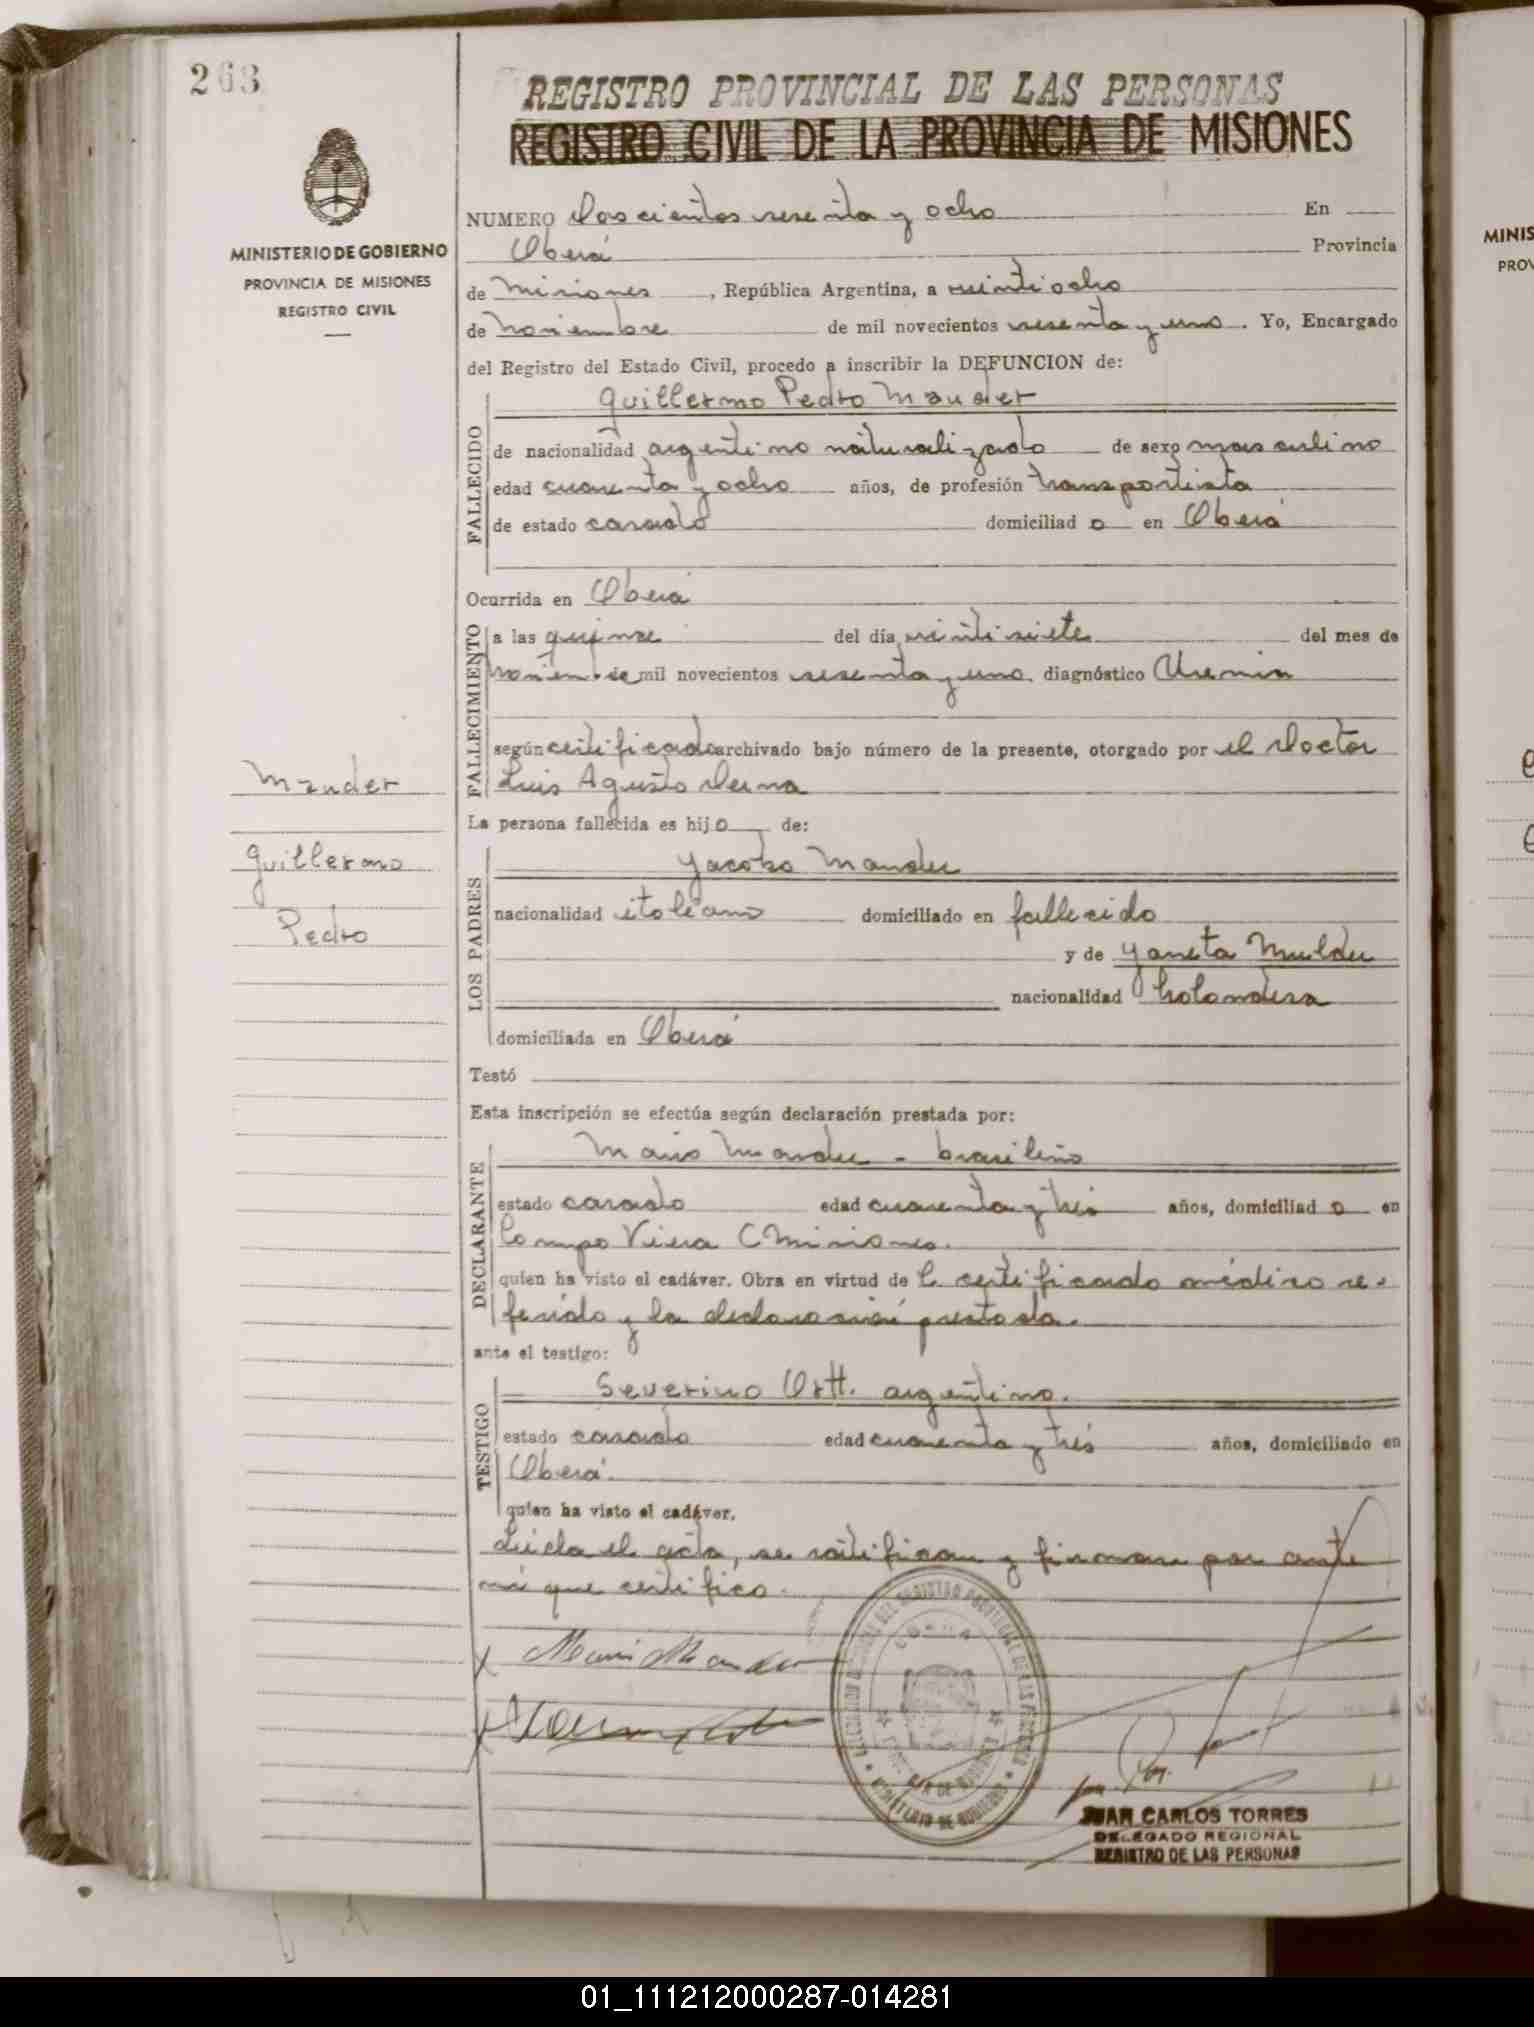 263
REGISTRO PROVINCIAL DE LAS PERSONAS
REGISTRO CIVIL DE LA PROVINCIA DE MISIONES
MINISTERIO DE GOBIERNO
PROVINCIA DE MISIONES
REGISTRO CIVIL
NUMERO Doscientos sesenta y ocho En
Oberá Provincia
de Misiones, República Argentina, a veintiocho
de noviembre de mil novecientos sesenta y uno. Yo, Encargado
del Registro del Estado Civil, procedo a inscribir la DEFUNCION de:
FALLECIDO
Guillermo Pedro Mander
de nacionalidad argentino naturalizado de sexo masculino
edad cuarenta y ocho años, de profesión transportista
de estado casado domiciliad o en Oberá
Ocurrida en Oberá
FALLECIMIENTO
a las quinse del día veintisiete del mes de
noviem. de mil novecientos sesenta y uno, diagnóstico Uremia
según certificado archivado bajo número de la presente, otorgado por el Doctor
Luis Agusto Derna
Mander
Guillermo
Pedro
La persona fallecida es hijo de:
LOS PADRES
Yacobo Mander
nacionalidad italiano domiciliado en fallecido
y de Yaneta Mulder
nacionalidad holandesa
domiciliada en Oberá
Testó
Esta inscripción se efectúa según declaración prestada por:
DECLARANTE
Mario Mander - brasileño
estado casado edad cuarenta y tres años, domiciliad o en
Campo Viera (Misiones.
quien ha visto el cadáver. Obra en virtud de l certificado médico re-
ferido y la declaración prestada.
ante el testigo:
TESTIGO
Severino Ott. argentino.
estado casado edad cuarenta y tres años, domiciliado en
Oberá.
quien ha visto el cadáver.
Leída el acta, se ratifican y firman por ante
mi que certifico.
Mario Mander
MINISTERIO DE GOBIERNO
JUAN CARLOS TORRES
DELEGADO REGIONAL
REGISTRO DE LAS PERSONAS
MINIS
PROV
01_111212000287-014281